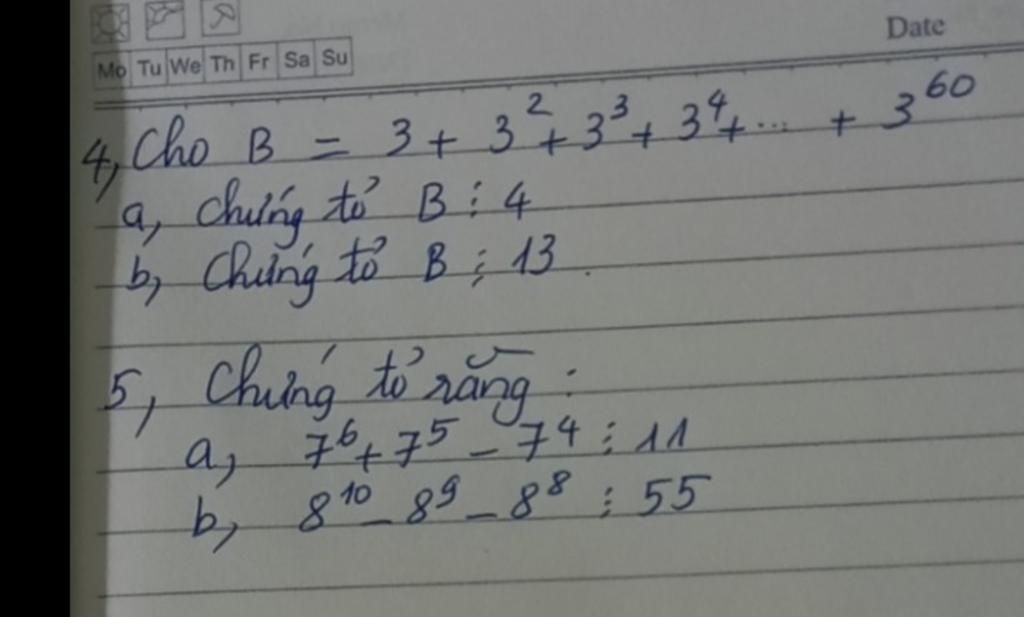 Date
Mo Tu We Th Fr Sa Su
4, Cho B = 3 + 3² + 3³ + 3⁴ + ... + 3⁶⁰
a, Chứng tỏ B ⋮ 4
b, Chứng tỏ B ⋮ 13.
5, Chứng tỏ rằng :
a, 7⁶ + 7⁵ - 7⁴ ⋮ 11
b, 8¹⁰ - 8⁹ - 8⁸ ⋮ 55